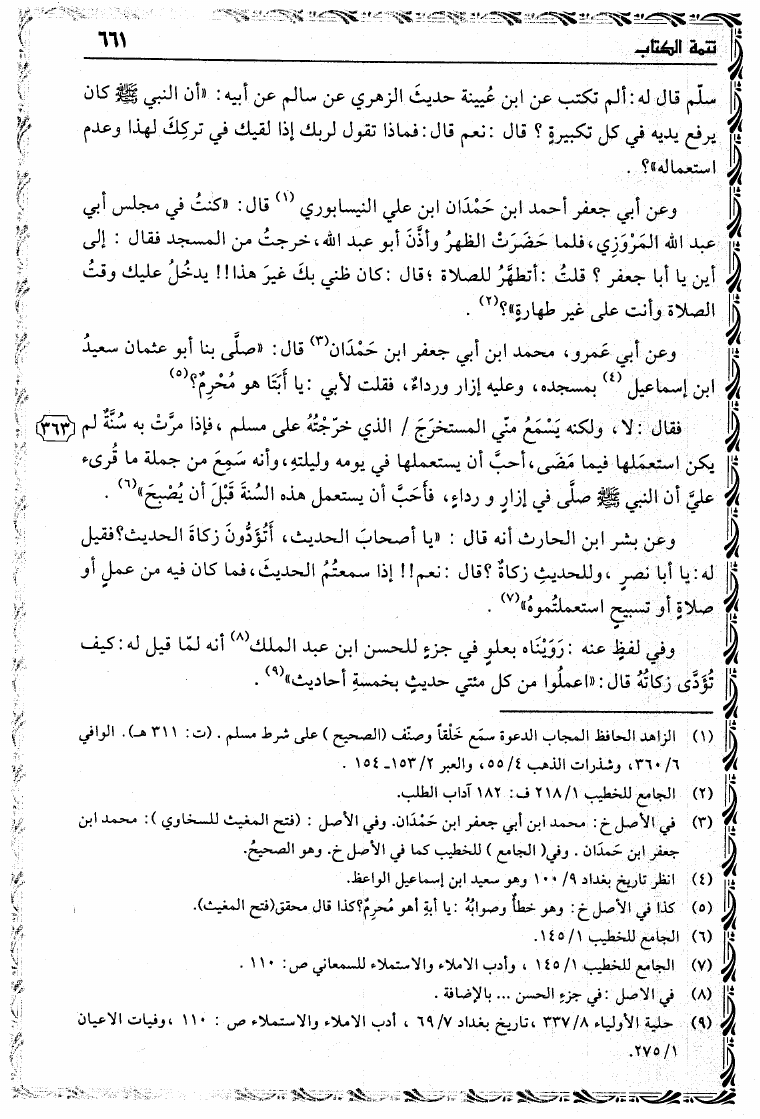 تتمة الكتاب
٦٦١
سلّم قال له: ألم تكتب عن ابن عُيينة حديثَ الزهري عن سالم عن أبيه: «أن النبي ﷺ كان
يرفع يديه في كل تكبيرةٍ ؟ قال : نعم قال: فماذا تقول لربك إذا لقيك في تركِكَ لهذا وعدم
استعماله»؟ .
وعن أبي جعفر أحمد ابن حَمْدَان ابن علي النيسابوري (١) قال: «كنتُ في مجلس أبي
عبد الله المَرْوَزِي، فلما حَضَرَتْ الظهرُ وأذَّنَ أبو عبد الله، خرجتُ من المسجد فقال : إلى
أين يا أبا جعفر ؟ قلتُ : أتطهَّرُ للصلاة ؛ قال : كان ظني بكَ غيرَ هذا!! يدخُلُ عليك وقتُ
الصلاة وأنت على غير طهارةٍ»؟(٢) .
وعن أبي عَمرو، محمد ابن أبي جعفر ابن حَمْدَان(٣) قال: «صلَّى بنا أبو عثمان سعيدُ
ابن إسماعيل (٤) بمسجده، وعليه إزار ورداءٌ، فقلت لأبي : يا أَبَتَا هو مُحْرِمٌ؟(٥)
فقال : لا، ولكنه يَسْمَعُ منّي المستخرَجَ / الذي خرّجْتُهُ على مسلم ، فإذا مرَّتْ به سُنَّةٌ لم
٣٦٣
يكن استعمَلها فيما مَضَى، أحبَّ أن يستعملها في يومه وليلتهِ، وأنه سَمِعَ من جملة ما قُرىء
عليَّ أن النبي ﷺ صلَّى في إزارٍ و رداءٍ، فأَحَبَّ أن يستعمل هذه السُنةَ قَبْلَ أن يُصْبحَ»(٦) .
وعن بشر ابن الحارث أنه قال : «يا أصحابَ الحديث، أَتُؤَدُّونَ زكاةَ الحديث؟ فقيل
له: يا أبا نصرٍ ، وللحديثِ زكاةٌ ؟ قال : نعم!! إذا سمعتُمُ الحديثَ، فما كان فيه من عملٍ أو
صلاةٍ أو تسبيحٍ استعملتُموهُ»(٧) .
وفي لفظٍ عنه : رَوَيْنَاه بعلوٍ في جزءٍ للحسن ابن عبد الملك(٨) أنه لمّا قيل له: كيف
تُؤَدَّى زكاتُهُ قال: «اعملُوا من كل مئتي حديثٍ بخمسةِ أحاديث»(٩) .
(١) الزاهد الحافظ المجاب الدعوة سمَع خَلْقاً وصنّف (الصحيح ) على شرط مسلم . (ت: ٣١١ هـ). الوافي
٣٦٠/٦، وشذرات الذهب ٥٥/٤، والعبر ١٥٣/٢ـ ١٥٤ .
(٢) الجامع للخطيب ٢١٨/١ ف: ١٨٢ آداب الطلب.
(٣) في الأصل خ: محمد ابن أبي جعفر ابن حَمْدَان. وفي الأصل : (فتح المغيث للسخاوي ): محمد ابن
جعفر ابن حَمدَان . وفي( الجامع ) للخطيب كما في الأصل خ. وهو الصحيحُ.
(٤) انظر تاريخ بغداد ١٠٠/٩ وهو سعيد ابن إسماعيل الواعظ.
(٥) كذا في الأصل خ: وهو خطأٌ وصوابُهُ : يا أبةِ أهو مُحرِمٌ؟ كذا قال محقق(فتح المغيث).
(٦) الجامع للخطيب ١٤٥/١.
(٧) الجامع للخطيب ١٤٥/١ ، وأدب الاملاء والاستملاء للسمعاني ص: ١١٠ .
(٨) في الاصل : في جزءِ الحسن ... بالإضافة .
(٩) حلية الأولياء ٣٣٧/٨ ، تاريخ بغداد ٦٩/٧ ، أدب الاملاء والاستملاء ص : ١١٠ ، وفيات الاعيان
٢٧٥/١.